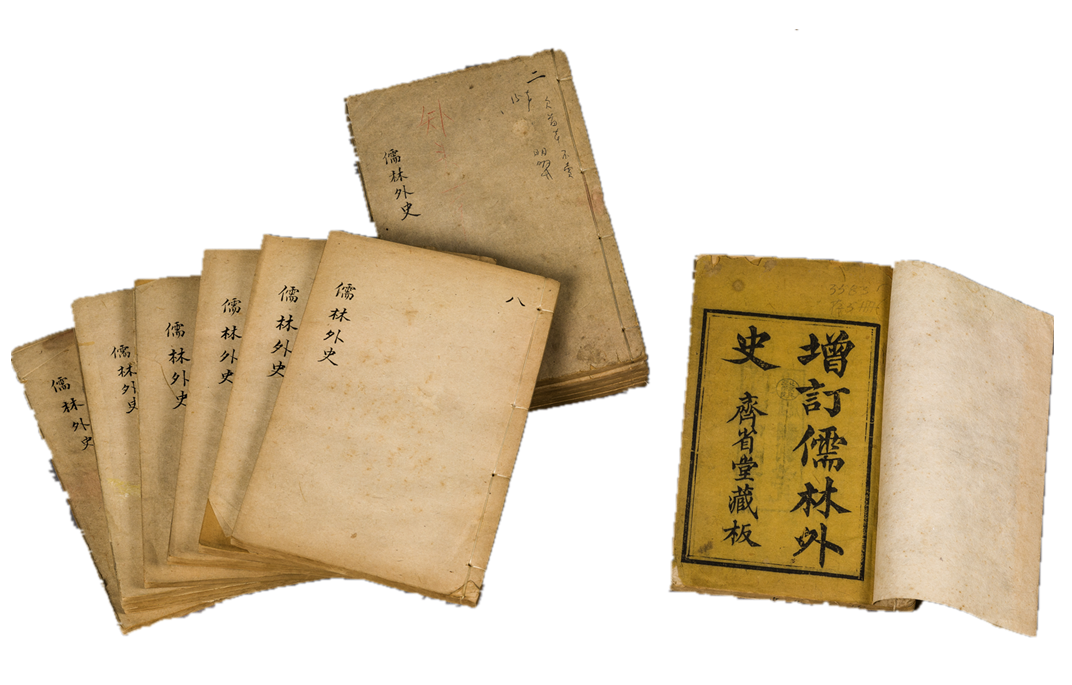 儒林外史
儒林外史
儒林外史
儒林外史
儒林外史
儒林外史
八
二
儒林外史
增訂儒林外
史
齊省堂藏板